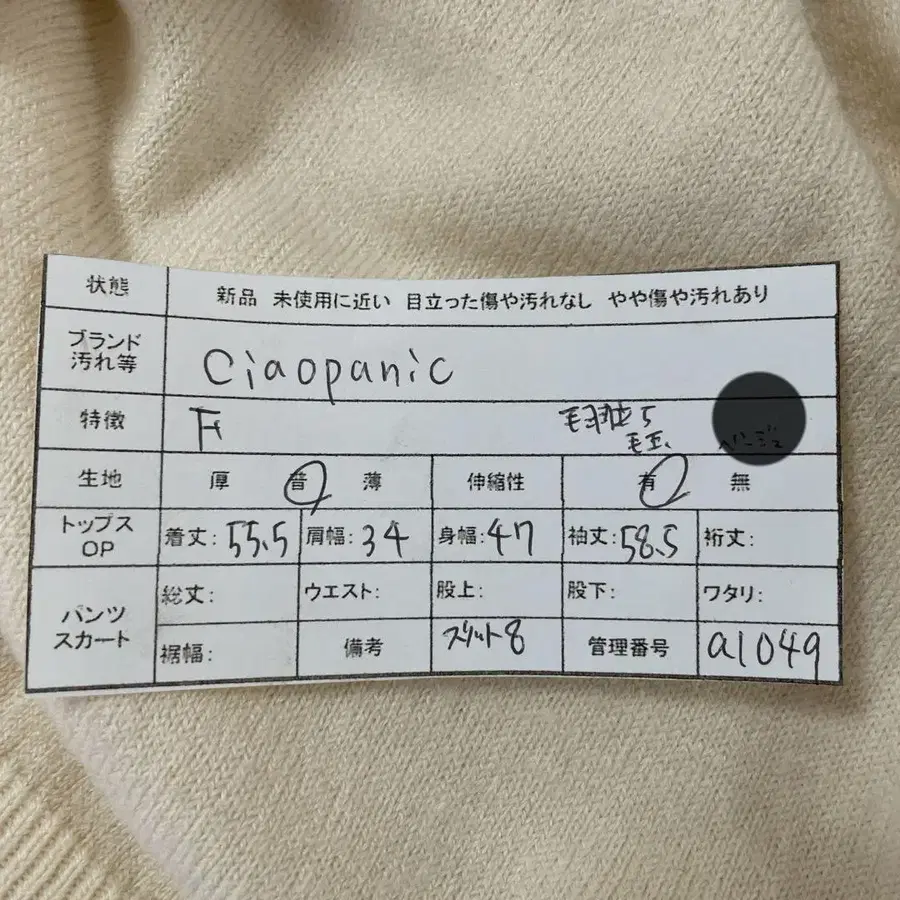 状態 新品 未使用に近い 目立った傷や汚れなし やや傷や汚れあり
ブランド
汚れ等 Ciaopanic
特徴 F
毛玉、 ベージュ
生地 厚 普 薄 伸縮性 有 無
トップス
OP 着丈: 55.5 肩幅: 34 身幅: 47 袖丈: 58.5 裄丈:
パンツ
スカート 総丈: ウエスト: 股上: 股下: ワタリ:
裾幅: 備考 スリット8 管理番号 a1049